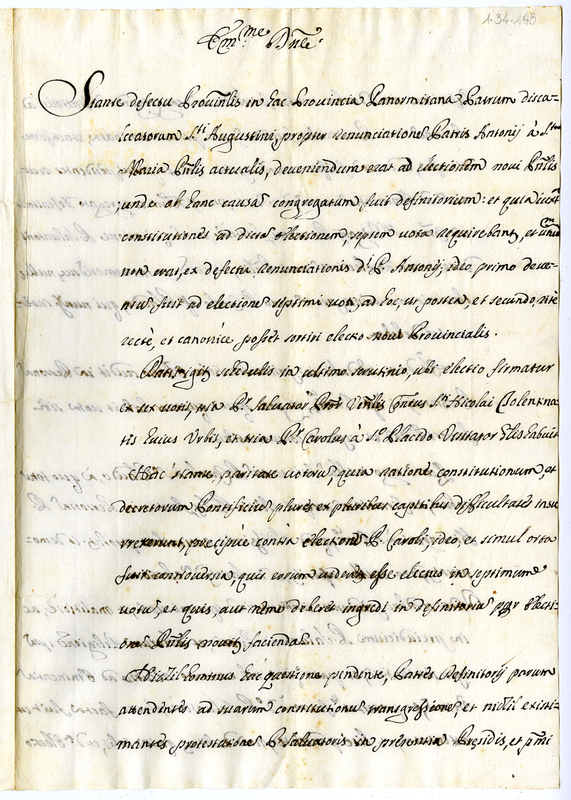 1-34-193
Em.me Dne:
Stante defectu Prouinlis in hac Prouincia Panormitana Patrum disca-
lceatorum S.ti Augustini, propter renunciatione Patris Antonij à S.ta
Maria Pnlis actualis, deueniendum erat ad electionem noui Pnlis
; unde ob hanc causã congregatum fuit definitorium: et quia
constitutiones ad dictã electionem, septem uota requirebant, et unũ
non erat, ex defectu renunciationis d.i P. Antonij, ideo primo deue-
ntũ fuit ad electione septimi uoti, ad hoc, ut postea, et secundo, ritè
rectè, et canonicè posset sortiri electo noui Prouincialis.
Datis igit schedulis in ultimo scrutinio, ubi electio firmatur
ex sex uotis, tria P. Saluator Prior Conũs S.ti Nicolai Tolentina
tis huius Urbis, et tria P. Carolus à S.to Placido Visitator habuit
Hac stante, paritate uotorũ, quia ratione constitutionum, et
decretorum Pontificiũ plures ex pluribus capitibus difficultates insu
rrexerunt, præcipuè contra electione P. Caroli, ideo, et simul orta
fuit controuersia, quis eorum esse electus in septimum
uotũ, et quis, aut nemo deberet ingredi in definitoriũ electi-
one Pnlis nouit, facienda.
Nihilominus hac questione pendente, Patres definitorij parum
attendentes ad suarum constitutionũ transgressione, et nichil existi-
mantes protestatione P. Saluatoris in presentia Presidis, et